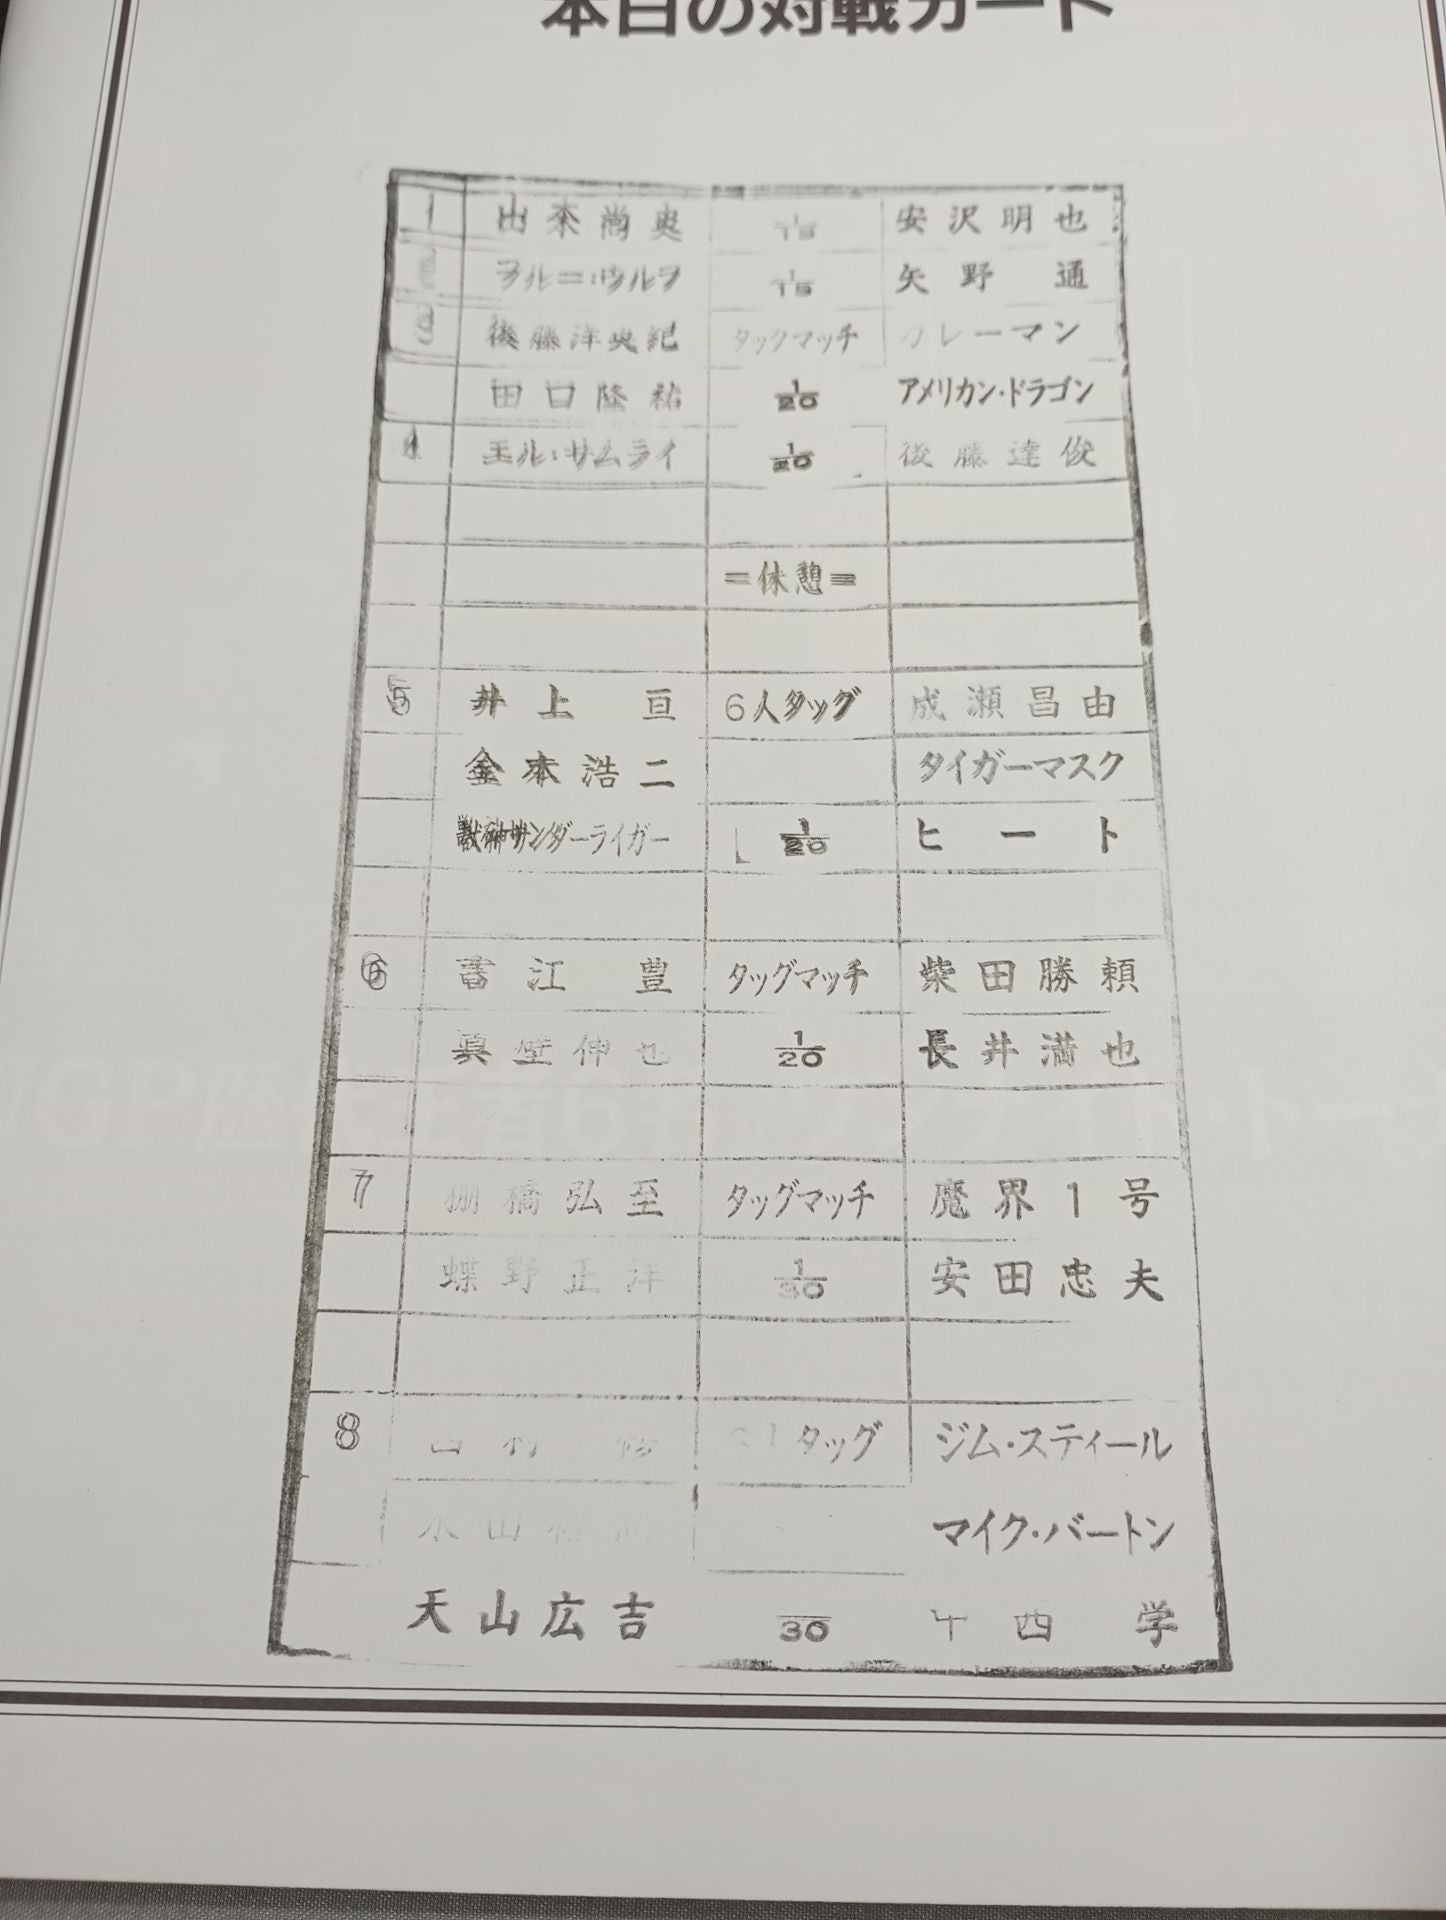 本日の対戦カード
1 山本尚史 1/15 安沢明也
ブルー・ウルフ 1/15 矢野 通
3 後藤洋央紀 タッグマッチ カレーマン
田口隆祐 1/20 アメリカン・ドラゴン
4 エル・サムライ 1/20 後藤達俊
=休憩=
5 井上 亘 6人タッグ 成瀬昌由
金本浩二 タイガーマスク
獣神サンダーライガー 1/20 ヒート
6 吉江 豊 タッグマッチ 柴田勝頼
真壁伸也 1/20 長井満也
7 棚橋弘至 タッグマッチ 魔界1号
蝶野正洋 1/30 安田忠夫
8 西村 修 タッグ ジム・スティール
マイク・バートン
天山広吉 30 中西 学